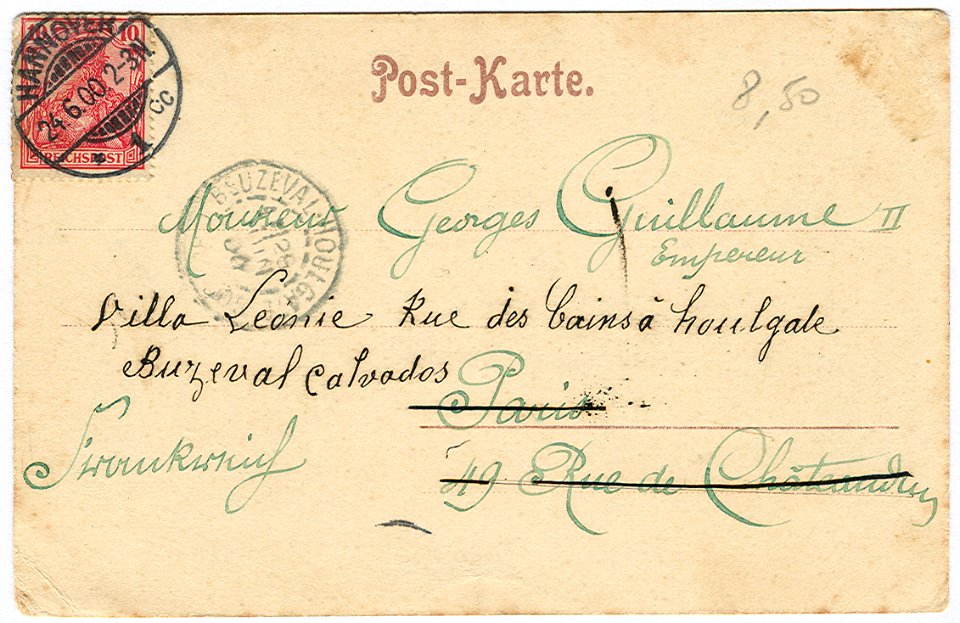 HANNOVER
24.6.00.2-3N.
* 1. cc
10
REICHSPOST
Post-Karte.
8,50
BEUZEVAL-HOULGATE
Monsieur Georges Guillaume II
Empereur
Villa Leonie Rue des bains à houlgate
Buzeval Calvados
Paris
49 Rue de Châteaudun
Frankreich